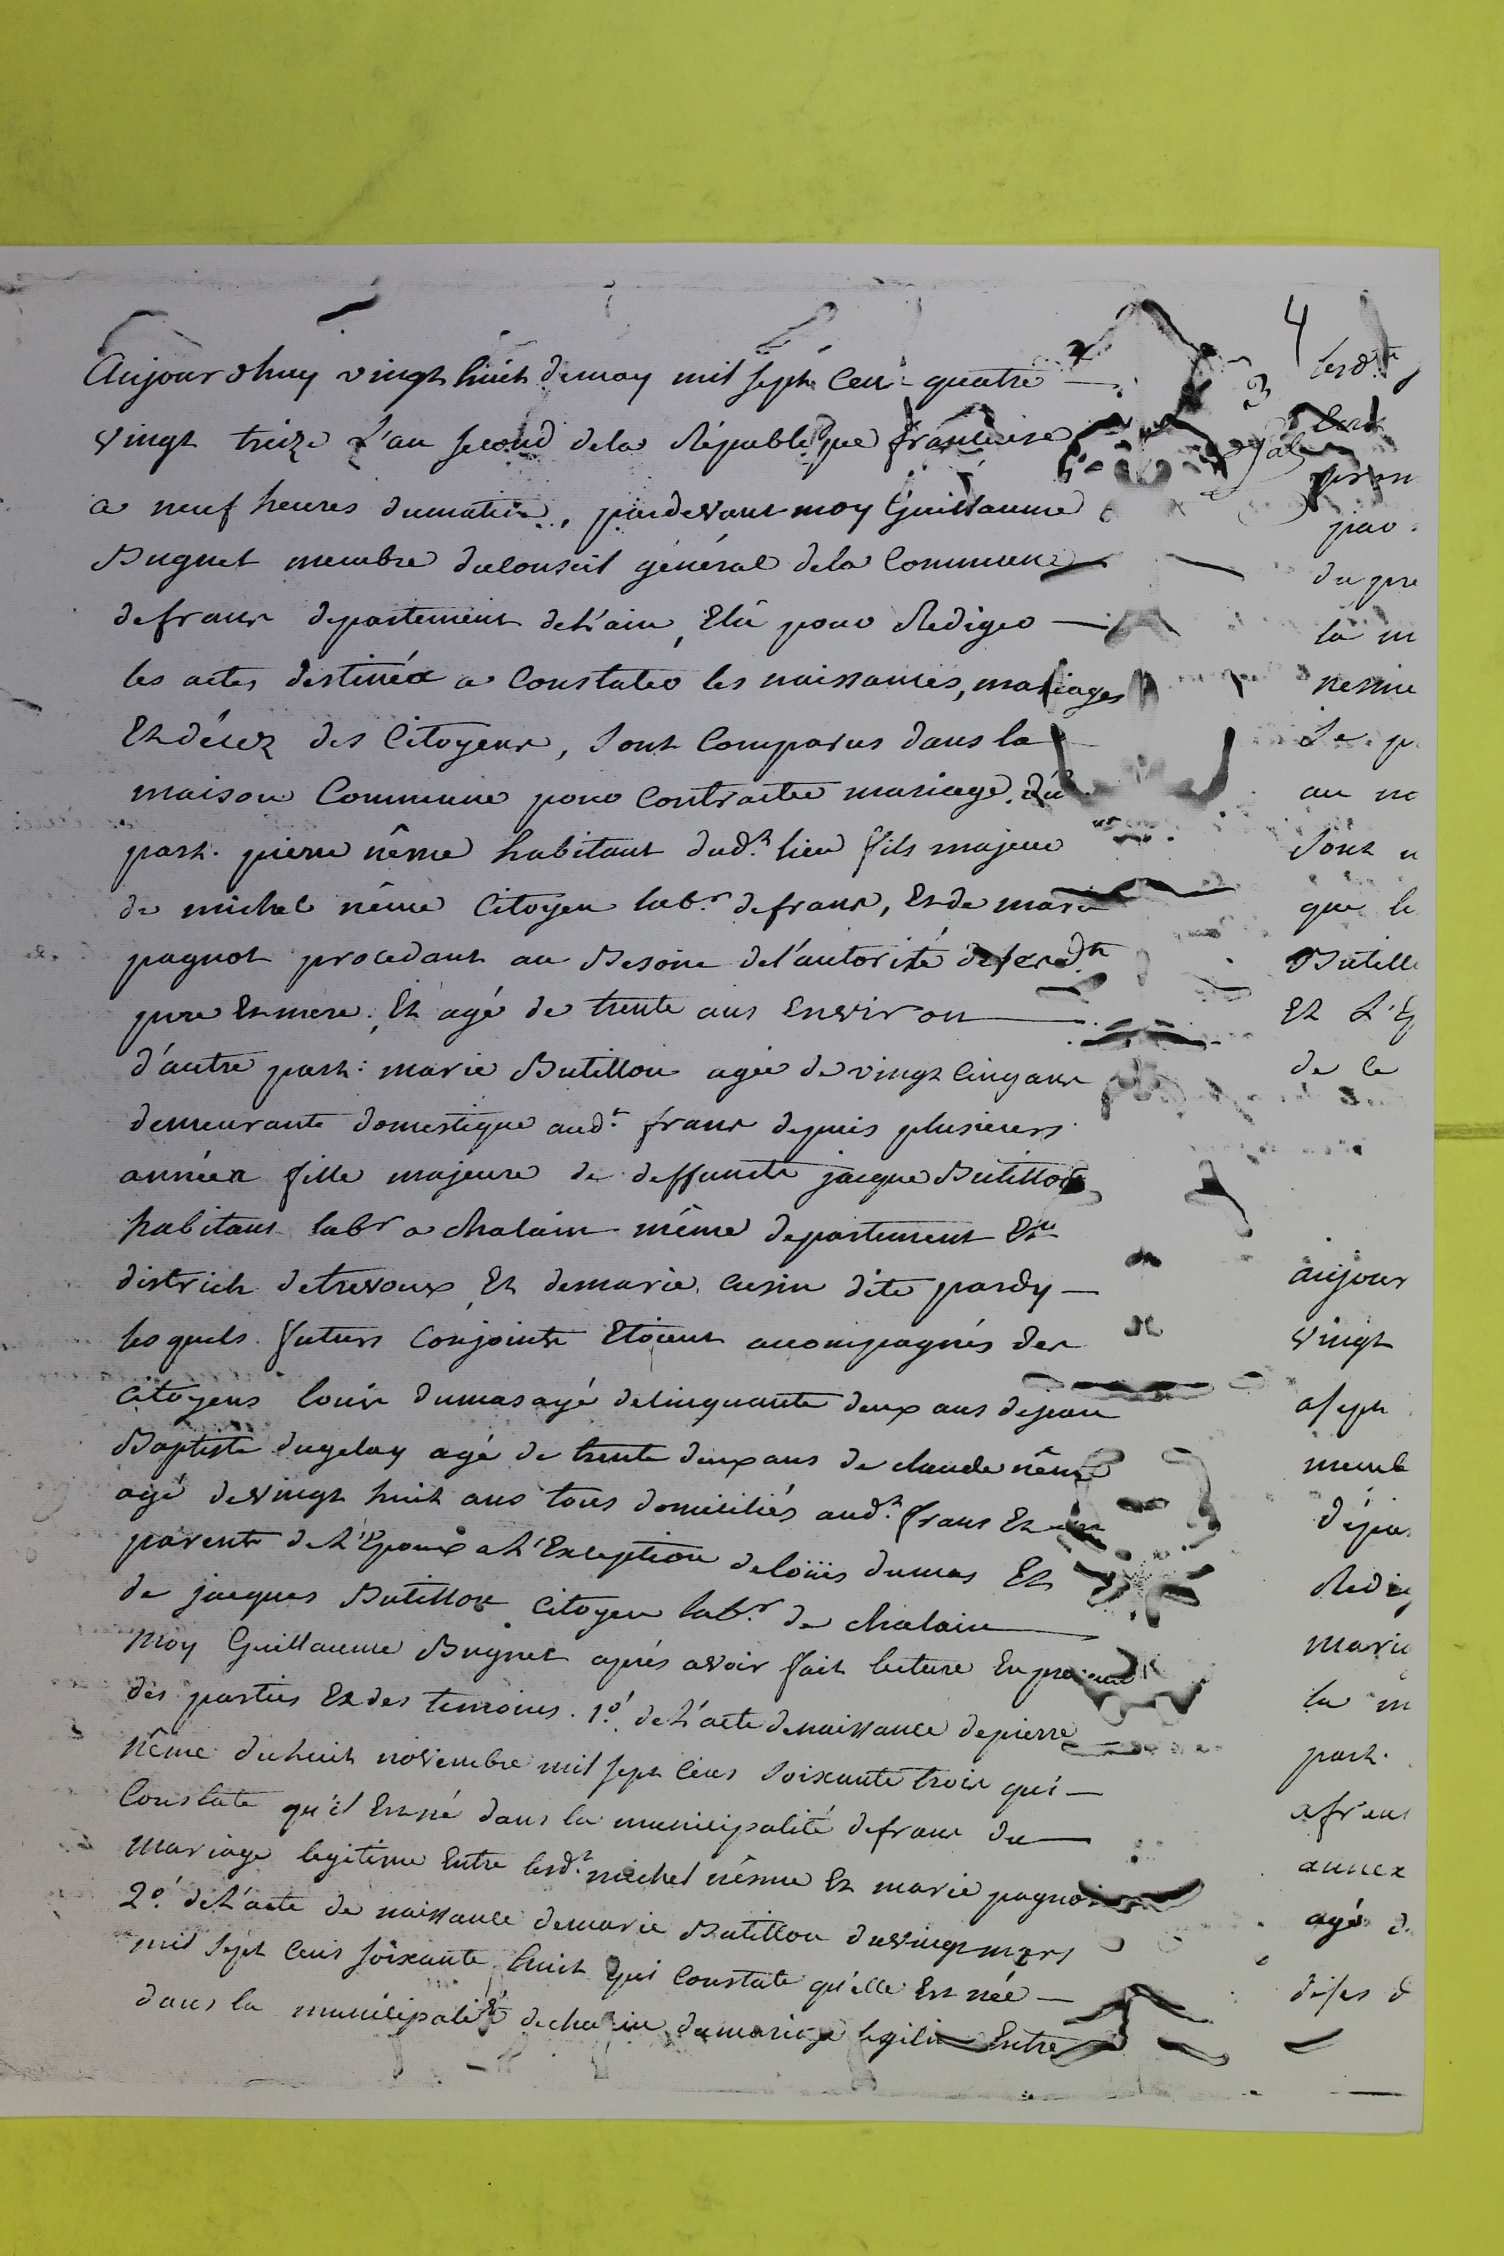 4
3
Aujourdhuy vingt huit demay mil sept cent quatre
vingt treize L'an second dela République francaise
a neuf heures dumatin, pardevant moy Guillaume
Bugnet membre duconseil général dela Commune
defrans departement deL'ain, Elû pour Rediger
les actes destinés a Constater les naissances, mariages
Et décez des Citoyens, sont Comparus dans la
maison Commune pour Contracter mariage, d'u
part. pierre nême habitant dud.t lieu fils majeur
de michel nême Citoyen lab.r defrans, Et de marie
pagnot procedant au Besoin del'autorité de sesd.ts
pere Et mere. Et agé de trente ans Environ
d'autre part: marie Butillon agée de vingt cinq ans
demeurante domestique aud.t frans depuis plusieurs
années fille majeure de deffunct jacque Butillon
habitant lab.r a chalain même departement Et
district detrevoux Et demarie cusin dite pardy
lesquels futurs Conjoints Etoient accompagnés des
Citoyens Louis dumas agé decinquante deux ans dejean
Baptiste dugelay agé de trente deux ans de claude nême
agé devingt huit ans tous domiciliés aud.t frans Et
parents de L'Epoux a L'Exception delouis dumas Et
de jacques Butillon Citoyen lab.r de chalain
Moy Guillaume Bugnet aprés avoir fait lecture En presence
des parties Et des temoins. 1.o de L'acte denaissance depierre
Nême duhuit novembre mil sept Cens soixante trois qui
Constate qu'il Est né dans la municipalité defrans du
mariage legitime Entre lesd.t michel nême Et marie pagnot
2.o de L'acte de naissance demarie Butillon duvingt mars
mil sept Cens soixante huit qui Constate qu'elle Est née
dans la municipalité de chalain dumariage legitime Entre
lesd.ts
pro
du pre
la m
nesme
Le p
au no
sont u
que le
Butill
Et L'E
de ce
aujour
vingt
asept
memb
dépar
Redig
maria
la m
part.
afrans
annex
agé d